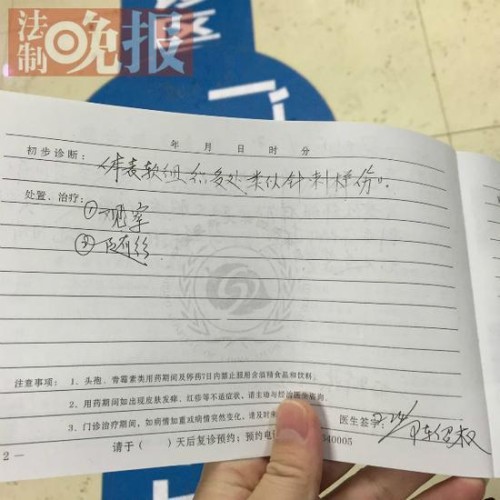 法制晚报
年 月 日 时 分
初步诊断：体表软组织多处类似针刺样伤。
处置、治疗：
①观察
②随诊
注意事项：1、头孢、青霉素类用药期间及停药7日内禁止服用含酒精食品和饮料。
2、用药期间如出现皮肤发痒、红疹等不适症状，请主动与经治医生
3、门诊治疗期间，如病情加重或病情突然变化，请及时来
医生签字：
请于（ ）天后复诊预约；预约电 40005
2 —